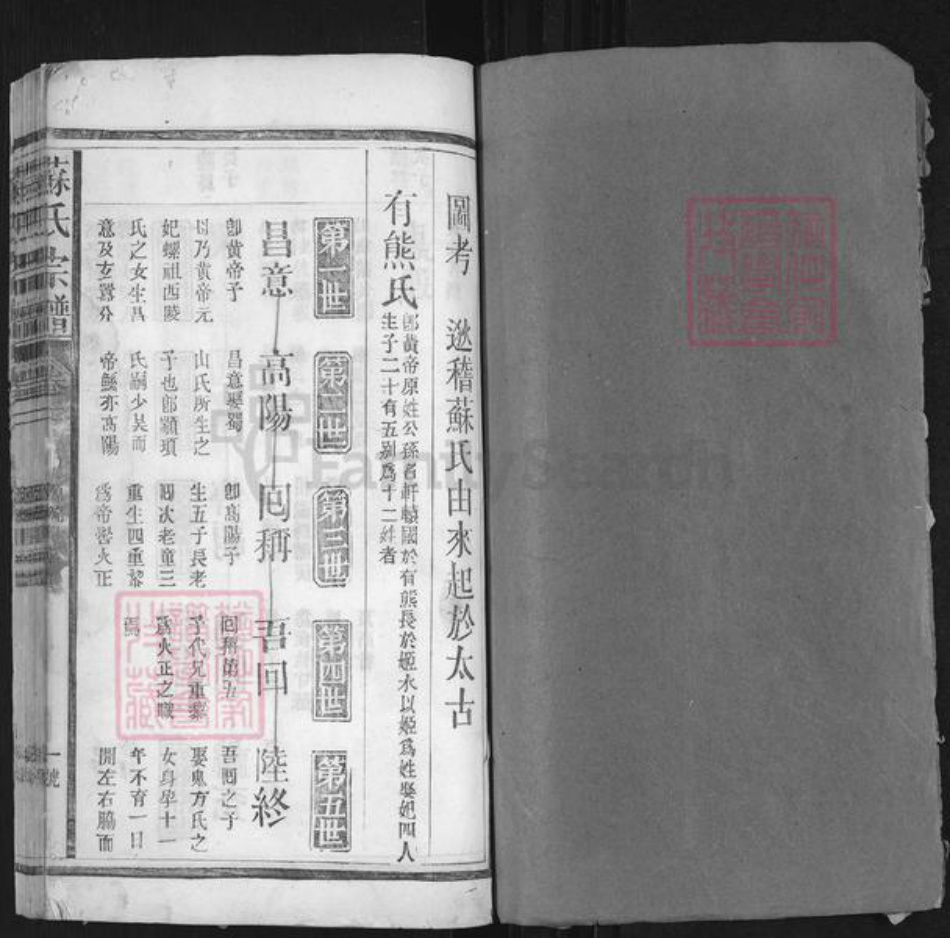 圖考 逖稽蘇氏由來起於太古
有熊氏
卽黃帝原姓公孫名軒轅國於有熊長於姬水以姬爲姓娶妃四人
生子二十有五别爲十二姓者
第一世
第二世
第三世
第四世
第五世
昌意
高陽
囘稱
吾回
陸終
卽黃帝子
以乃黃帝元
妃螺祖西陵
氏之女生昌
意及玄囂分
昌意娶蜀
山氏所生之
子也卽顓頊
氏嗣少昊而
帝號亦高陽
卽高陽子
生五子長老
重生四重黎
爲帝嚳火正
囘稱第五
子代兄重黎
爲火正之職
焉
吾囘之子
娶鬼方氏之
女身孕十一
年不育一日
開左右脇而
蘇氏宗譜
一號
FamilySearch